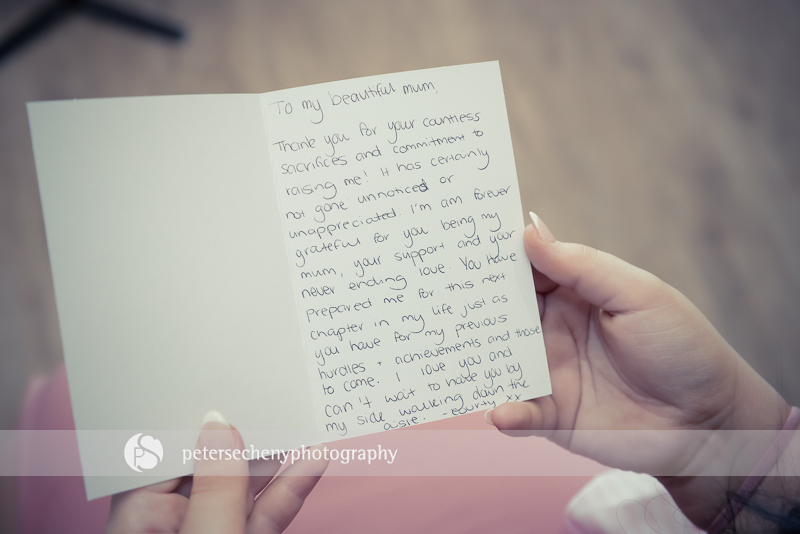 To my beautiful mum,
Thank you for your countless
sacrifices and commitment to
raising me! It has certainly
not gone unnoticed or
unappreciated. I'm am forever
grateful for you being my
mum, your support and your
never ending love. You have
prepared me for this next
chapter in my life just as
you have for my previous
hurdles + achievements and those
to come. I love you and
can't wait to have you by
my side walking down the
aisle. - Courty xx
PS
petersechenyphotography